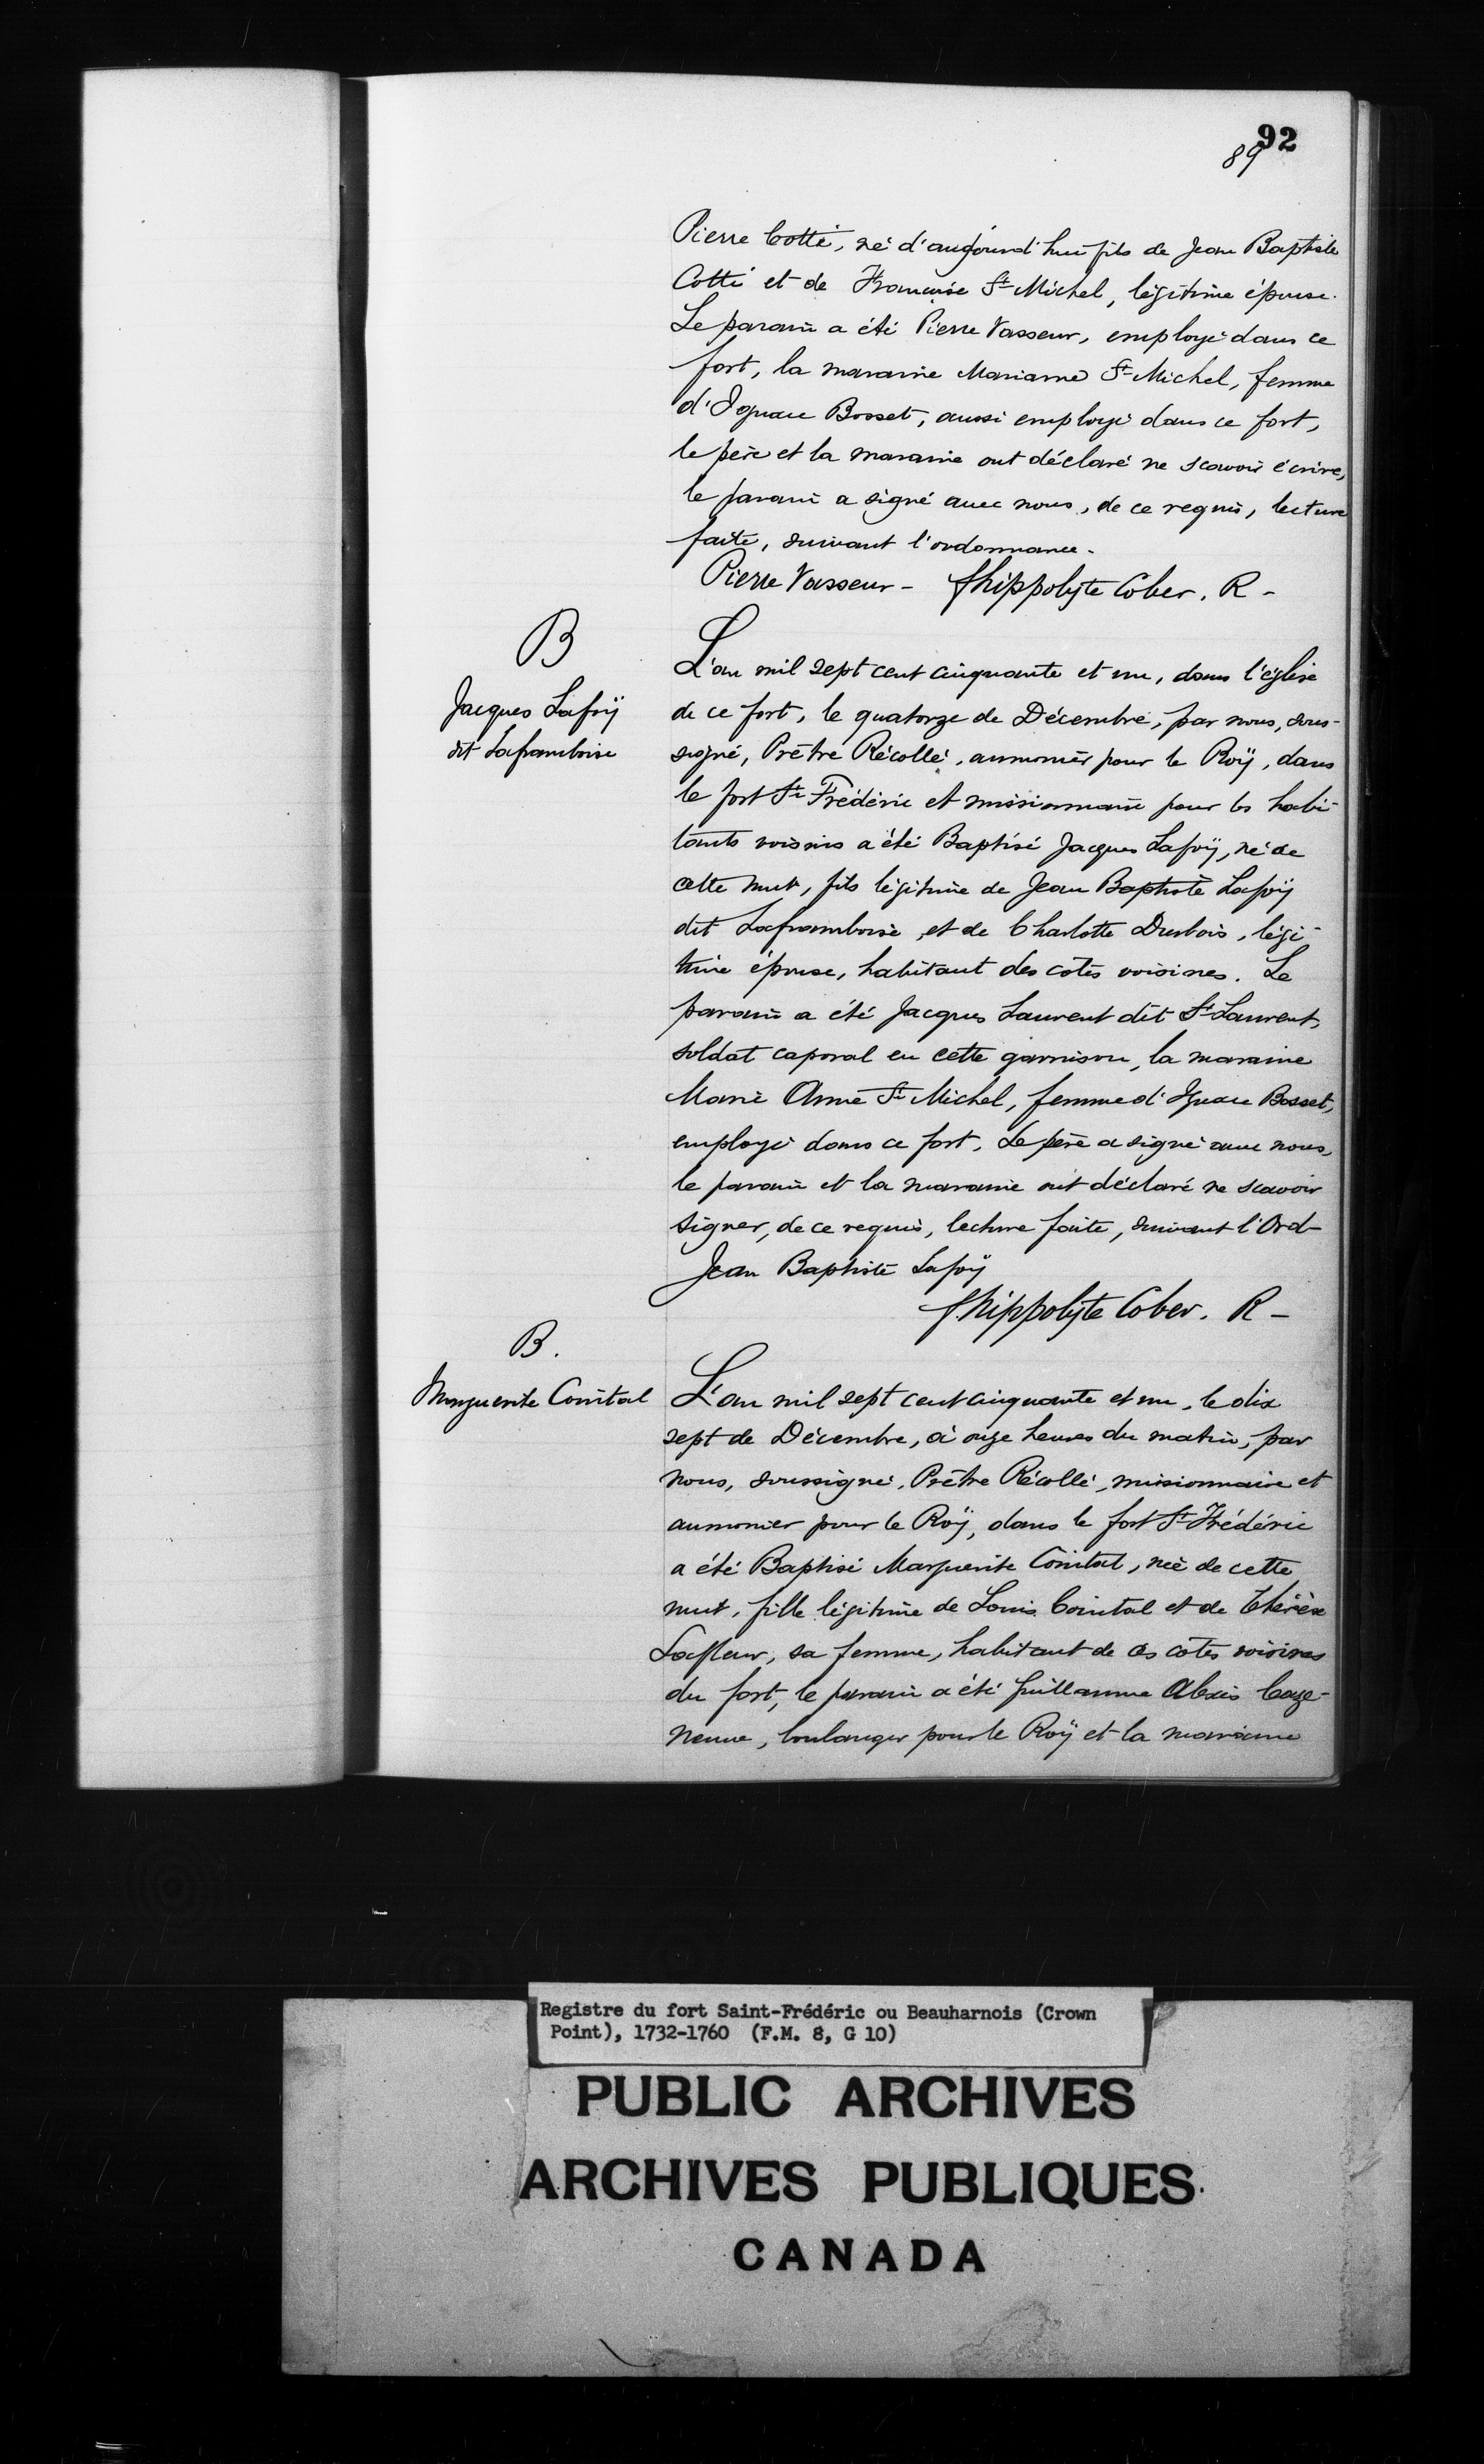 92
89
Pierre Cotté, né d'aujourd'hui fils de Jean Baptiste
Cotté et de Francoise St Michel, légitime épouse.
Le parain a été Pierre Vasseur, employé dans ce
fort, la maraine Marianne St Michel, femme
d'Ignace Bosset, aussi employé dans ce fort,
le père et la maraine ont déclaré ne scavoir écrire,
le parain a signé avec nous, de ce requis, lecture
faite, suivant l'ordonnance.
Pierre Vasseur - f hippolyte Cober. R -
B
Jacques Lafoÿ
dit Laframboise
L'an mil sept cent cinquante et un, dans l'église
de ce fort, le quatorze de Décembre, par nous, sous-
signé, Prêtre Récollé, aumonier pour le Roÿ, dans
le fort St Frédéric et missionnaire pour les habi-
tants voisins a été Baptisé Jacques Lafoÿ, né de
cette nuit, fils légitime de Jean Baptiste Lafoÿ
dit Laframboise, et de Charlotte Dubois, légi-
time épouse, habitant des cotés voisines. Le
parain a été Jacques Laurent dit St Laurent,
soldat caporal en cette garnison, la maraine
Marie Anne St Michel, femme d'Ignace Bosset,
employé dans ce fort. Le père a signé avec nous,
le parain et la maraine ont déclaré ne scavoir
signer, de ce requis, lecture faite, suivant l'Ord-
Jean Baptiste Lafoÿ
f. hippolyte Cober. R -
B.
Marguerite Cointal
L'an mil sept cent cinquante et un, le dix
sept de Décembre, à onze heures du matin, par
nous, soussigné, Prêtre Récollé, missionnaire et
aumonier pour le Roÿ, dans le fort St Frédéric
a été Baptisé Marguerite Cointal, née de cette
nuit, fille légitime de Louis Cointal et de Thérèse
Lafleur, sa femme, habitant de ces cotes voisines
du fort, le parain a été Guillaume Alexis Caze-
neuve, boulanger pour le Roÿ et la maraine
Registre du fort Saint-Frédéric ou Beauharnois (Crown
Point), 1732-1760 (F.M. 8, G 10)
PUBLIC ARCHIVES
ARCHIVES PUBLIQUES
CANADA